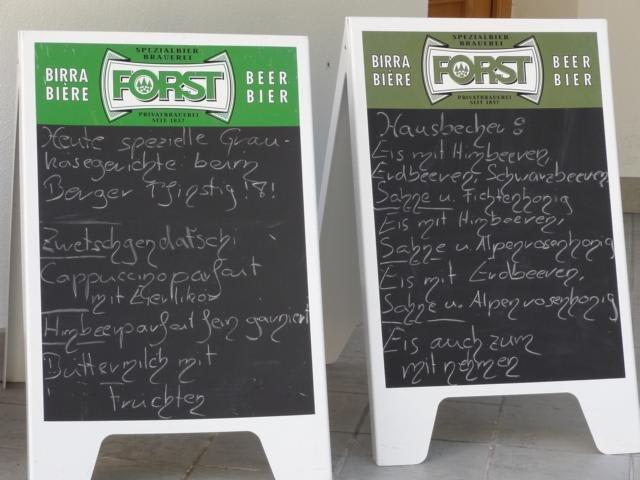 SPEZIALBIER
BRAUEREI
BIRRA
BIÈRE
FORST
BEER
BIER
PRIVATBRAUEREI
SEIT 1857
Heute spezielle Grau-
käsegerichte beim
Berger
Zwetschgendatschi
Cappuccinoparfait
mit Eierlikör
Himbeerparfait fein garniert
Buttermilch mit
Früchten
SPEZIALBIER
BRAUEREI
BIRRA
BIÈRE
FORST
BEER
BIER
PRIVATBRAUEREI
SEIT 1857
Hausbecher:
Eis mit Himbeeren,
Erdbeeren, Schwarzbeeren
Sahne u. Fichtenhonig
Eis mit Himbeeren,
Sahne u. Alpenrosenhonig
Eis mit Erdbeeren,
Sahne u. Alpenrosenhonig
Eis auch zum
mitnehmen